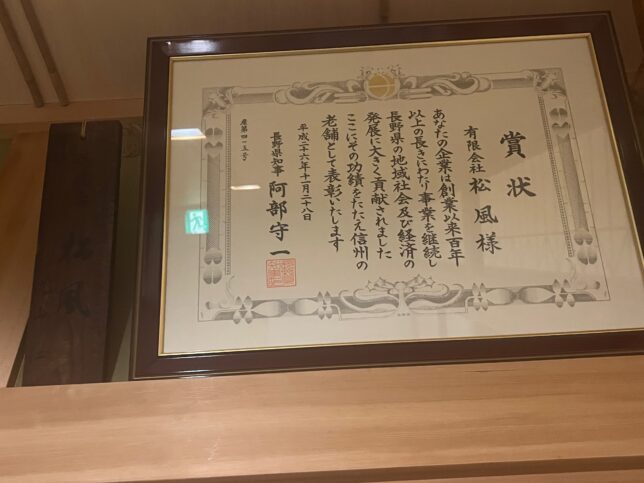 賞状
有限会社 松風様
あなたの企業は創業以来百年
以上の長きにわたり事業を継続し
長野県の地域社会及び経済の
発展に大きく貢献されました
ここにその功績をたたえ信州の
老舗として表彰いたします
平成二十六年十一月二十八日
長野県知事 阿部守一
産第四一五号
松風